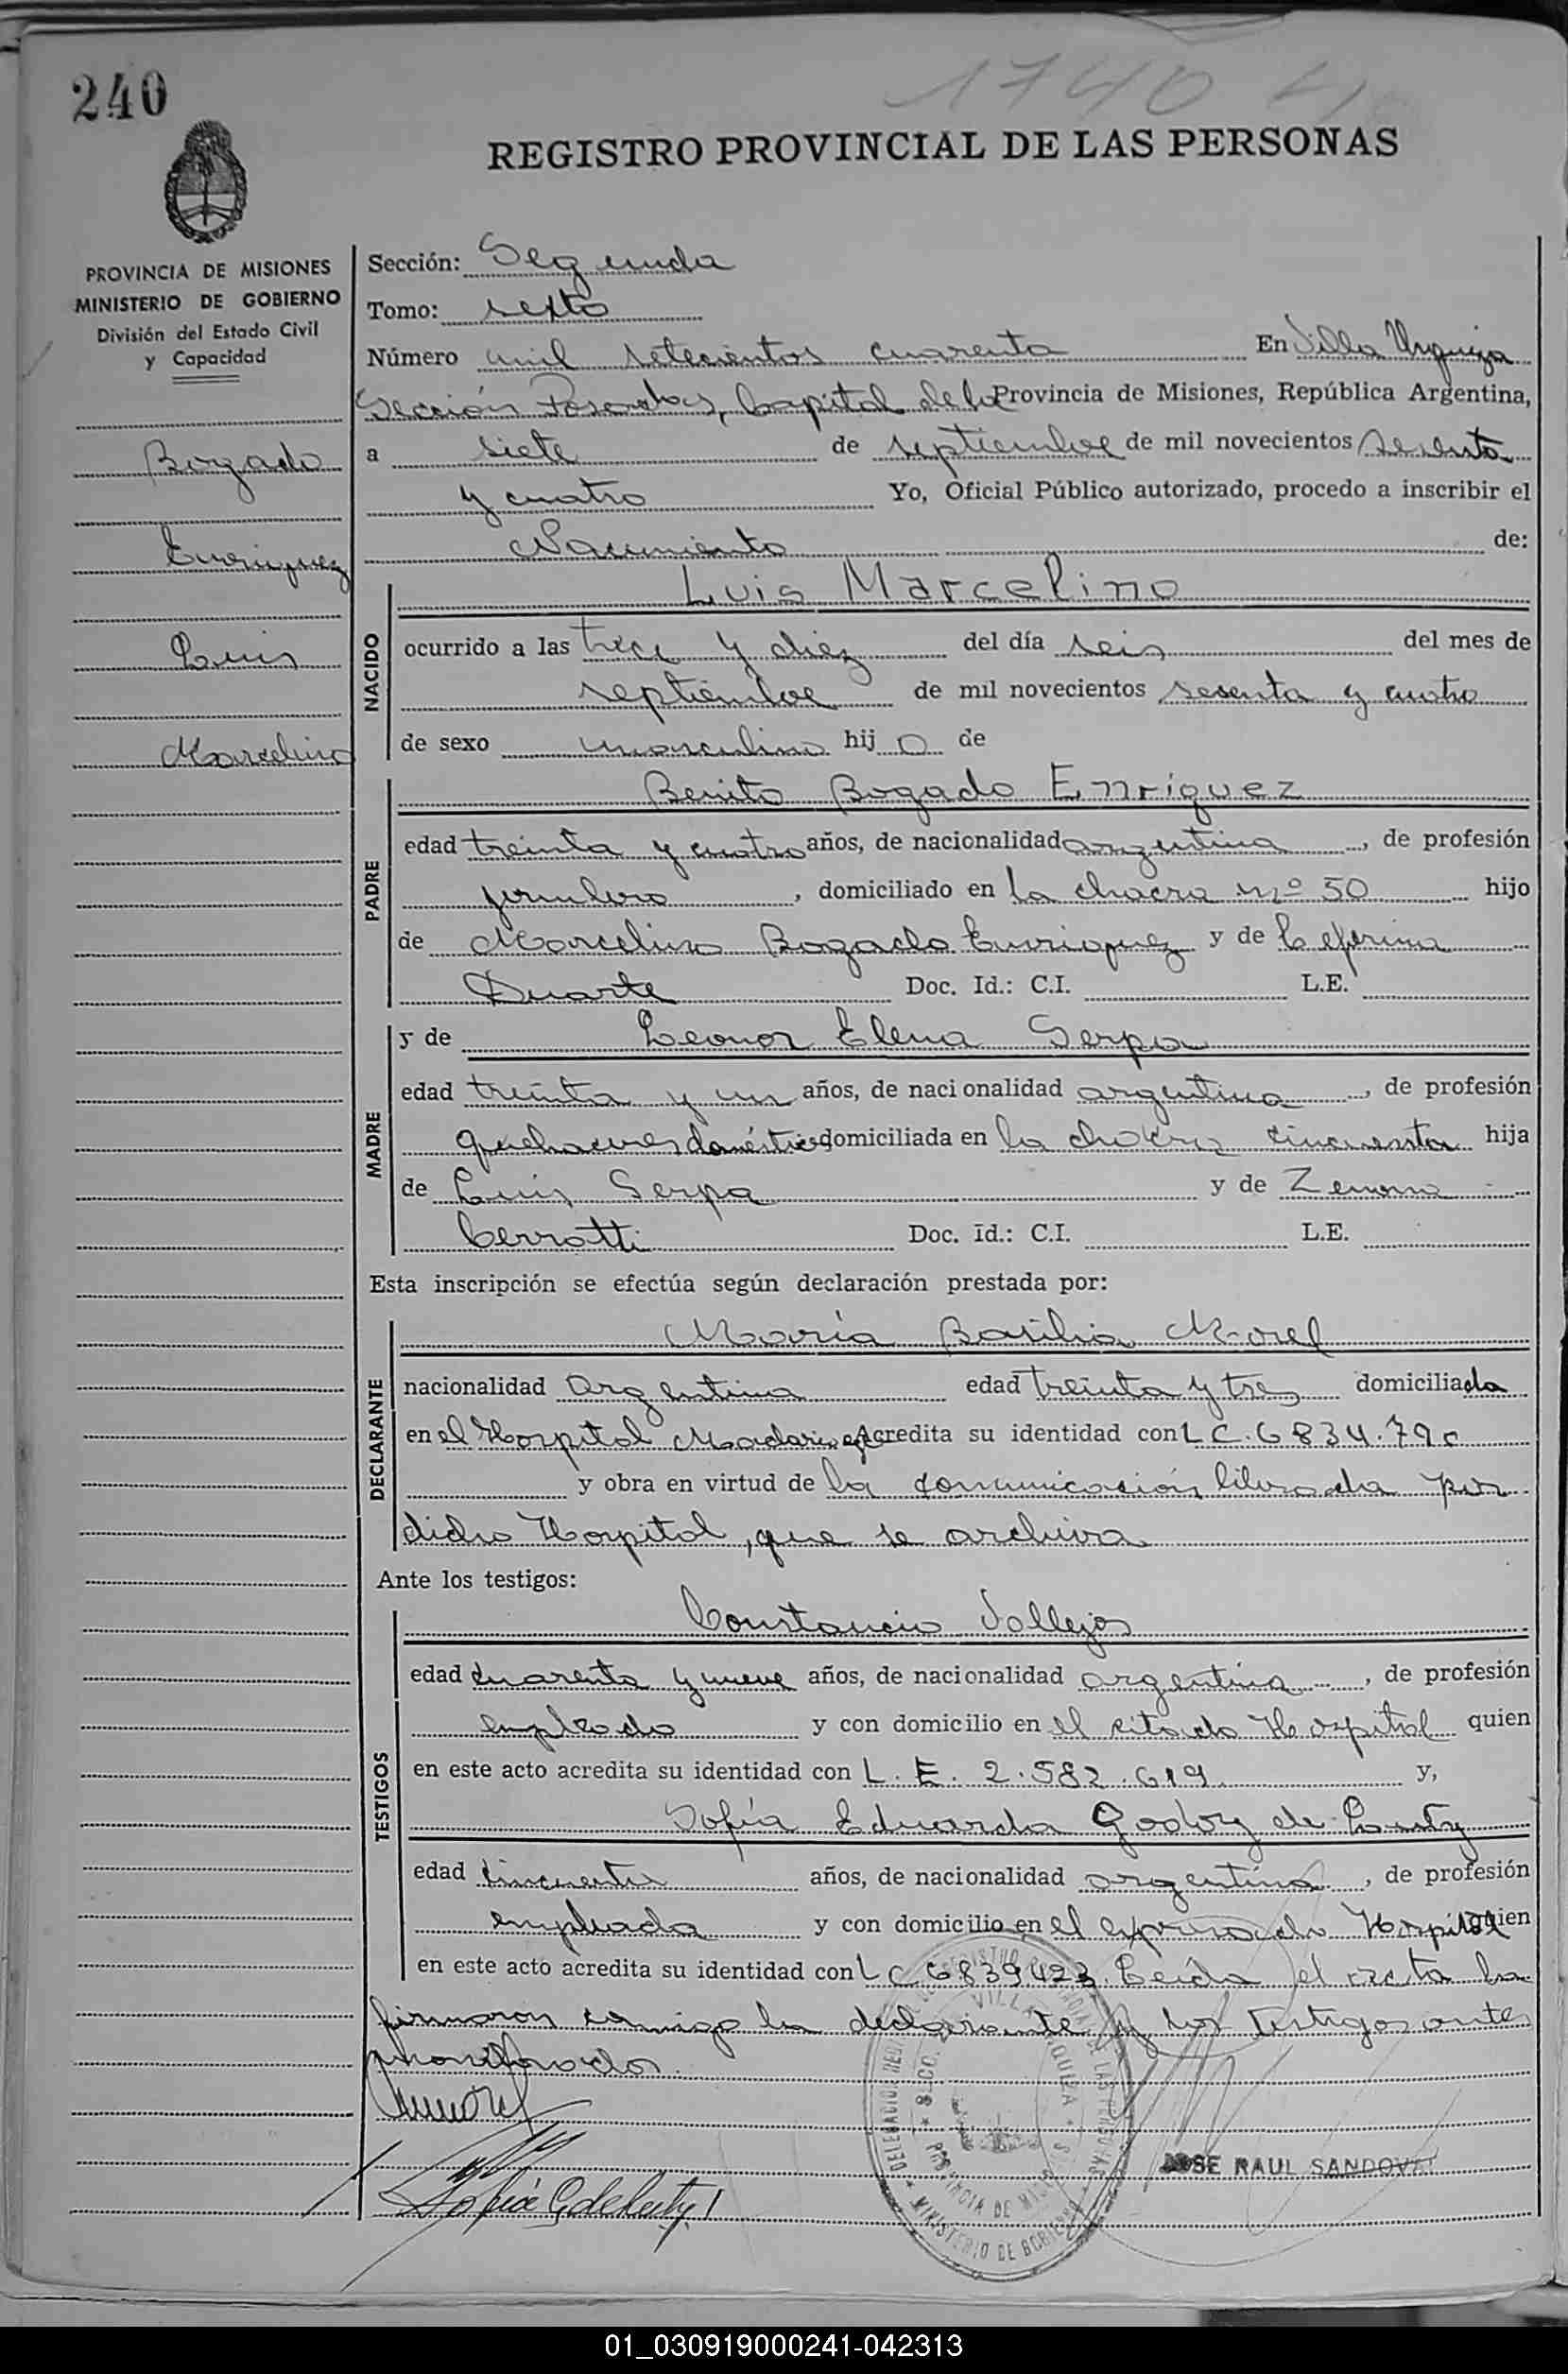 240
1740
REGISTRO PROVINCIAL DE LAS PERSONAS
PROVINCIA DE MISIONES
MINISTERIO DE GOBIERNO
División del Estado Civil
y Capacidad
Bogado
Enriquez
Luis
Marcelino
Sección: Segunda
Tomo: sexto
Número mil setecientos cuarenta En Villa Urquiza
Sección Posadas, Capital de la Provincia de Misiones, República Argentina,
a siete de septiembre de mil novecientos sesenta
y cuatro Yo, Oficial Público autorizado, procedo a inscribir el
Nacimiento de:
NACIDO
Luis Marcelino
ocurrido a las trece y diez del día seis del mes de
septiembre de mil novecientos sesenta y cuatro
de sexo masculino hijo de
PADRE
Benito Bogado Enríquez
edad treinta y cuatro años, de nacionalidad argentina, de profesión
jornalero, domiciliado en la chacra nº 50 hijo
de Marcelino Bogado Enriquez y de Ceferina
Duarte Doc. Id.: C.I. L.E.
MADRE
y de Leonor Elena Serpa
edad treinta y un años, de nacionalidad argentina, de profesión
quehaceres domésticos domiciliada en la chacra cincuenta hija
de Luis Serpa y de Zenona
Cerrotti Doc. Id.: C.I. L.E.
Esta inscripción se efectúa según declaración prestada por:
DECLARANTE
María Basilia Morel
nacionalidad argentina edad treinta y tres domiciliada
en el Hospital Madariaga Acredita su identidad con L C. 6834.790
y obra en virtud de la comunicación librada por
dicho Hospital, que se archiva
Ante los testigos:
TESTIGOS
Constancio Vallejos
edad cuarenta y nueve años, de nacionalidad argentina, de profesión
empleado y con domicilio en el citado Hospital quien
en este acto acredita su identidad con L. E. 2.582.619 y,
Sofía Eduarda Godoy de
edad cincuenta años, de nacionalidad argentina, de profesión
empleada y con domicilio en el expresado Hospital quien
en este acto acredita su identidad con L C 6839423. Leída el acta la
firmaron conmigo la declarante y los testigos antes
mencionados.
JOSE RAUL SANDOVAL
VILLA URQUIZA
PROVINCIA DE MISIONES
MINISTERIO DE GOBIERNO
01_030919000241-042313